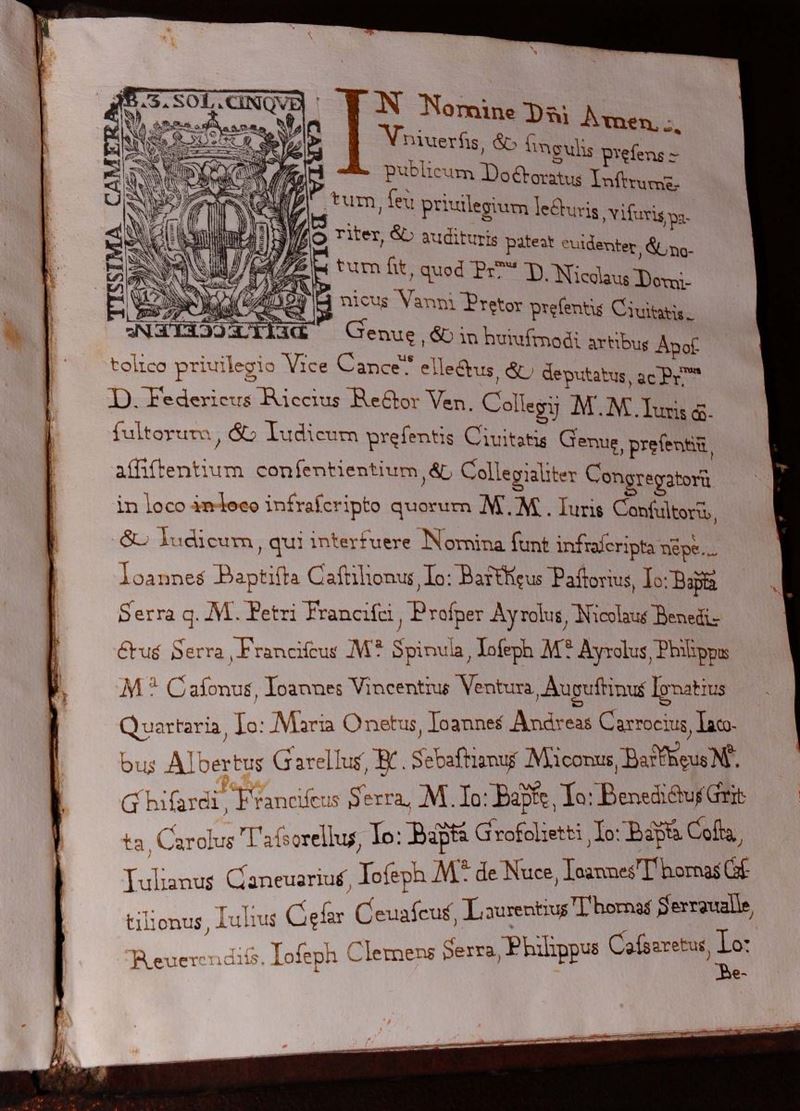 B. 3. SOL. CINQVE
CARTA BOLLATA
DELL'ECCELEN
TISSIMA CAMERA
17
IN Nomine Dñi Amen.
Vniuersis, & singulis pręsens
publicum Doctoratus Instrumē-
tum, seù priuilegium lecturis, visuris, pa-
riter, & audituris pateat euidenter, & no-
tum sit, quod Pr.mus D. Nicolaus Domi-
nicus Vanni Prętor pręsentis Ciuitatis
Genuę, & in huiusmodi artibus Apos-
tolico priuilegio Vice Cance.us ellectus, & deputatus, ac Pr.mus
D. Federicus Riccius Rector Ven. Collegij M. M. Iuris cō-
sultorum, & Iudicum pręsentis Ciuitatis Genuę, pręsentiū,
assistentium consentientium, & Collegialiter Congregatorū
in loco in loco infrascripto quorum M. M. Iuris Consultorū,
& Iudicum, qui interfuere Nomina sunt infrascripta nēpè
Ioannes Baptista Castilionus, Io: Barthęus Pastorius, Io: Bapta
Serra q. M. Petri Francisci, Prosper Ayrolus, Nicolaus Benedi-
ctus Serra, Franciscus M.a Spinula, Ioseph M.a Ayrolus, Philippus
M.a Casonus, Ioannes Vincentius Ventura, Augustinus Ignatius
Quartaria, Io: Maria Onetus, Ioannes Andreas Carrocius, Iaco-
bus Albertus Garellus, Sebastianus Miconus, Barthęus M.a
Ghisardi, Franciscus Serra, M. Io: Bapte, Io: Benedictus Grit-
ta, Carolus Tassorellus, Io: Bapta Grosolietti, Io: Bapta Costa,
Iulianus Caneuarius, Ioseph M.a de Nuce, Ioannes Thomas Cas-
tilionus, Iulius Cęsar Ceuascus, Laurentius Thomas Serraualle,
Reuerendiss. Ioseph Clemens Serra, Philippus Cassaretus, Io:
Be-